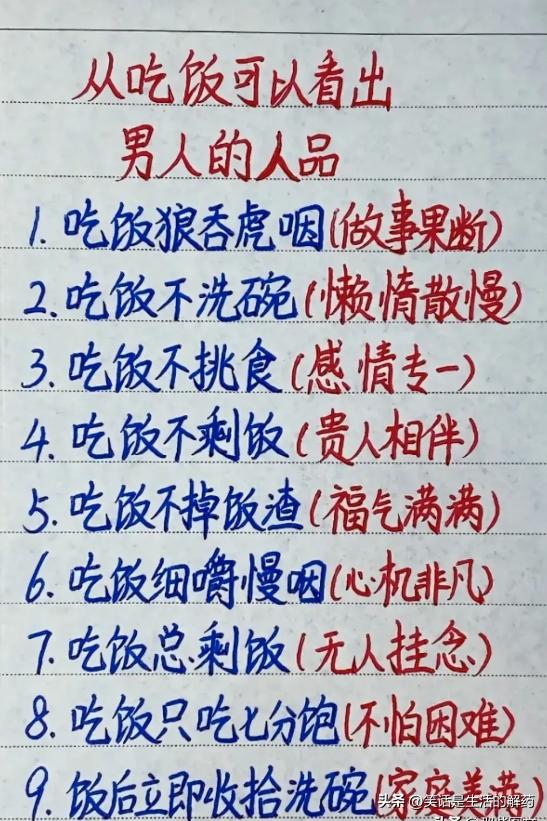 从吃饭可以看出
男人的人品
1. 吃饭狼吞虎咽(做事果断)
2. 吃饭不洗碗(懒惰散慢)
3. 吃饭不挑食(感情专一)
4. 吃饭不剩饭(贵人相伴)
5. 吃饭不掉饭渣(福气满满)
6. 吃饭细嚼慢咽(心机非凡)
7. 吃饭总剩饭(无人挂念)
8. 吃饭只吃七分饱(不怕困难)
9. 饭后立即收拾洗碗(家庭美满)
头条 @笑话是生活的解药